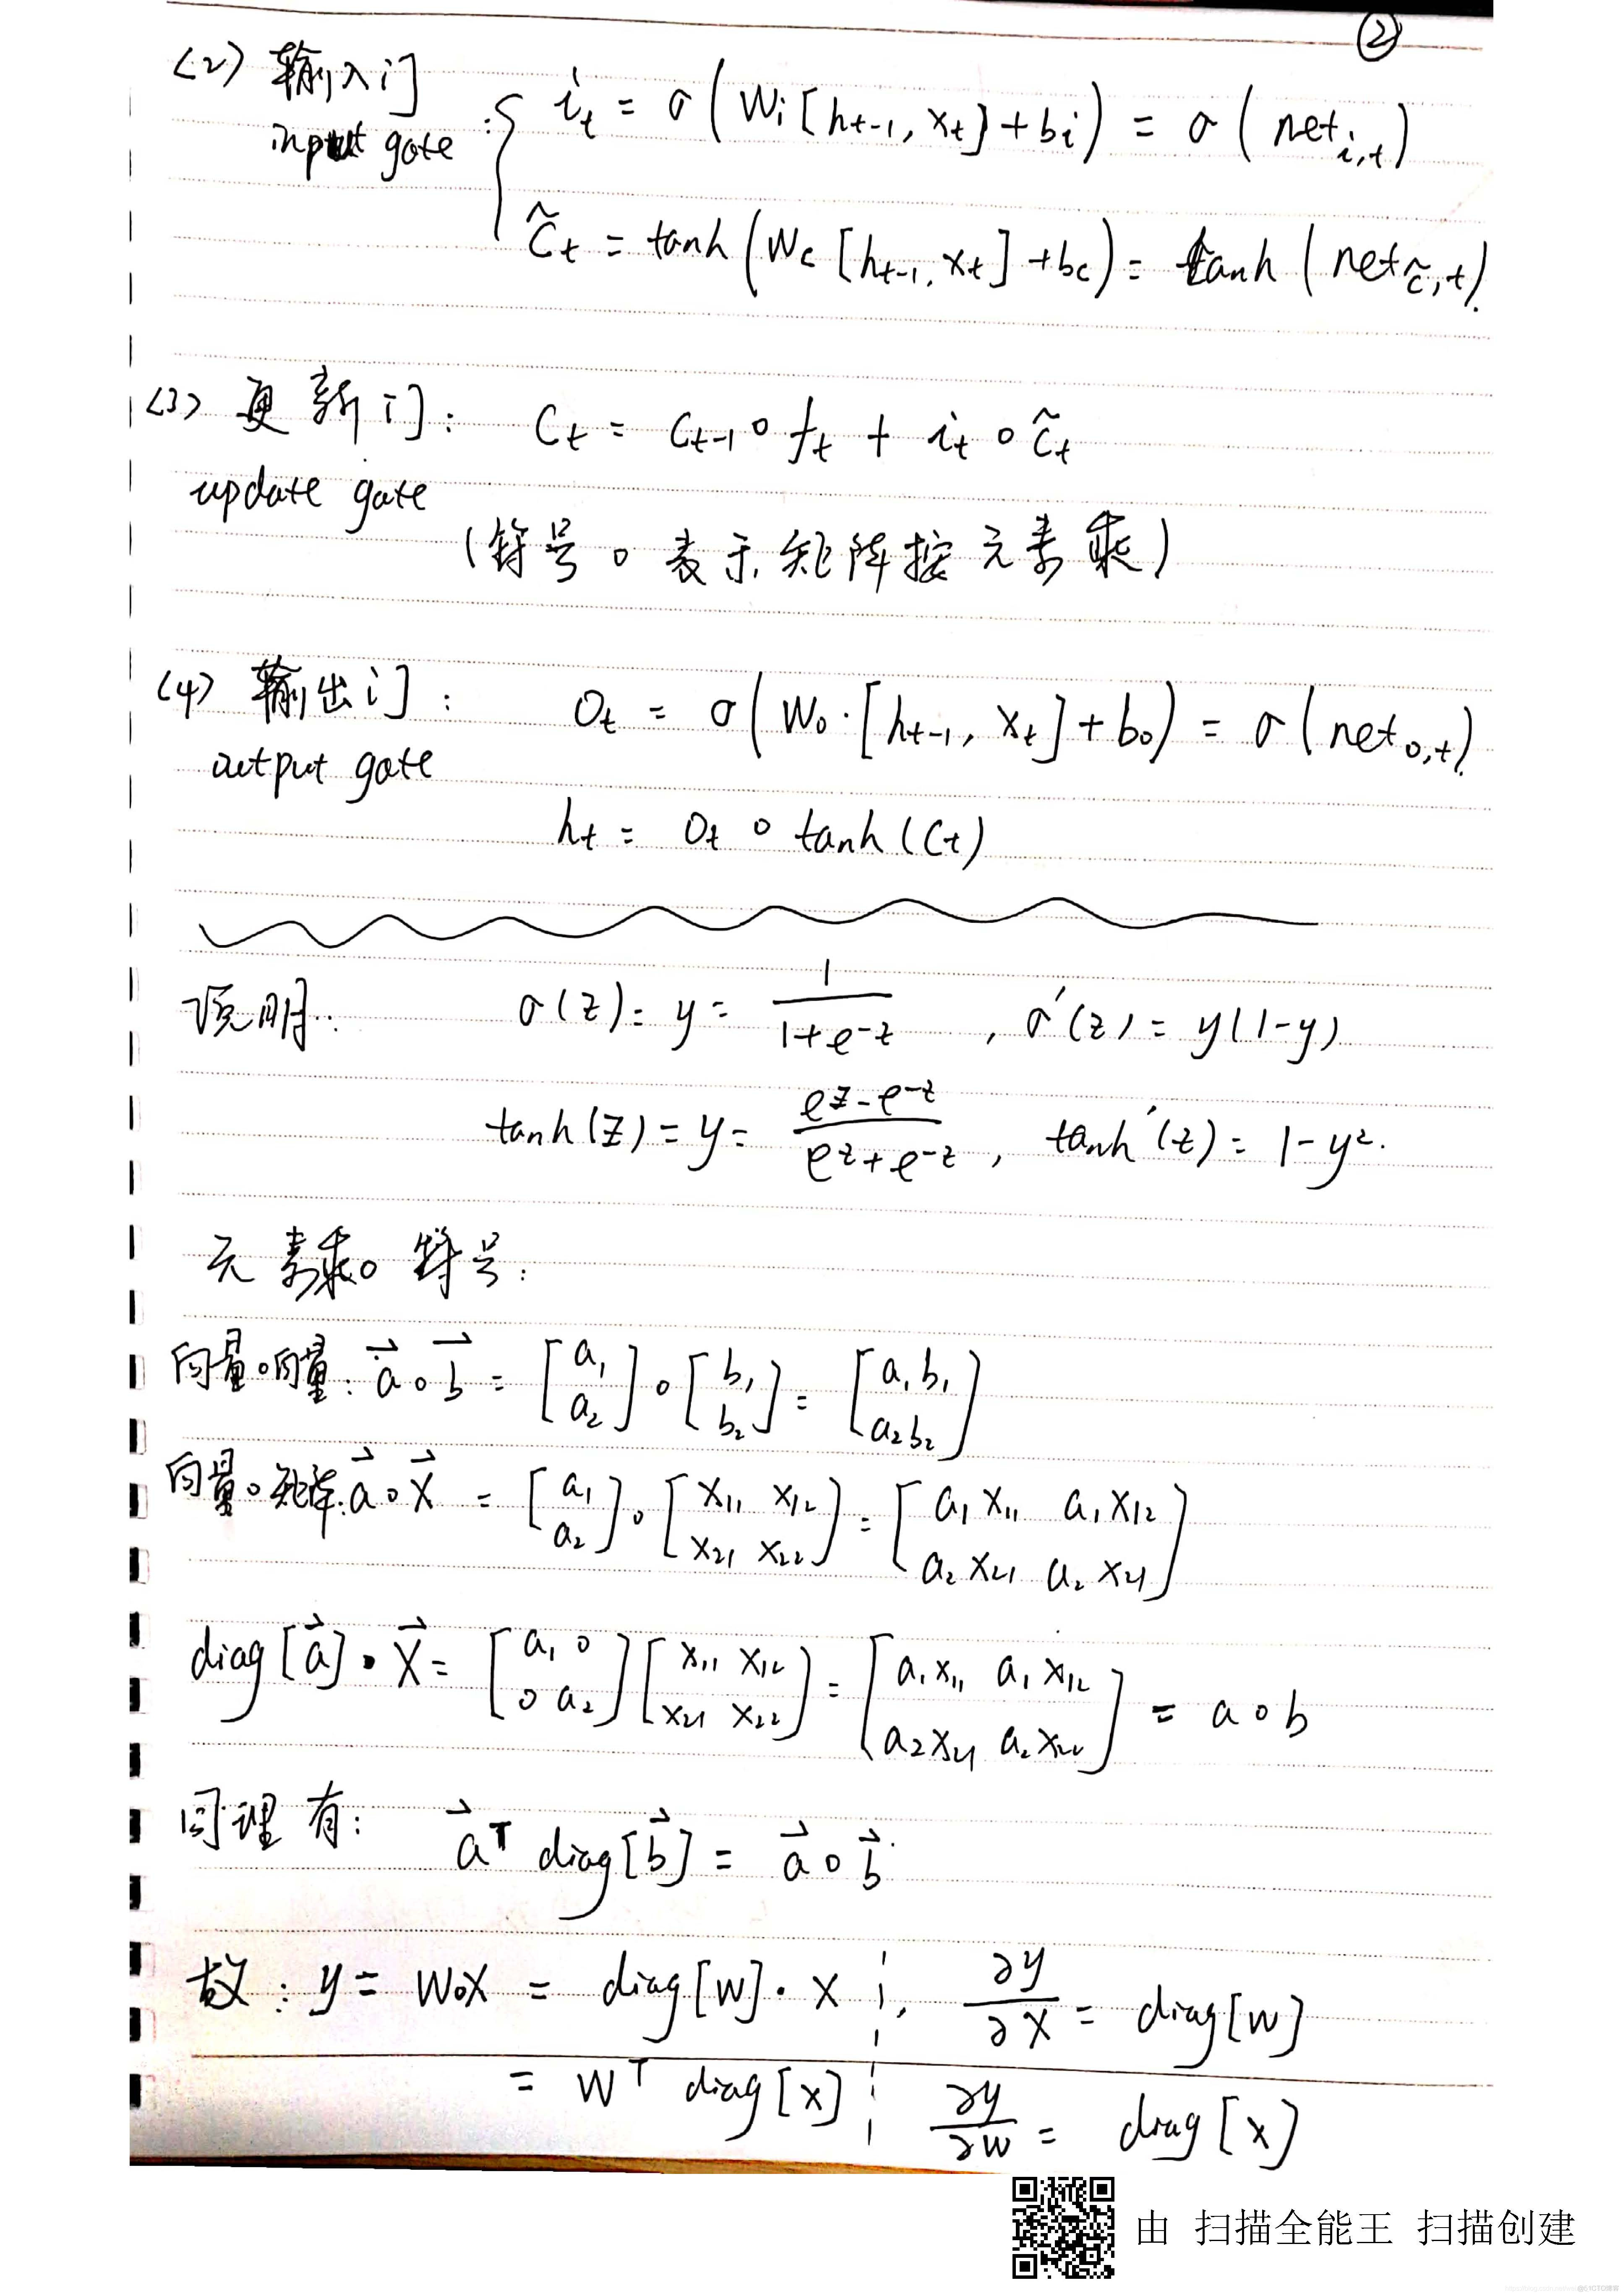 ②
(2) 输入门 : { i_t = σ(W_i[h_{t-1}, x_t]+b_i) = σ(net_{i,t})
input gate
c̃_t = tanh(W_c[h_{t-1}, x_t]+b_c) = tanh(net_{c̃,t}).
(3) 更新门: C_t = C_{t-1} ∘ f_t + i_t ∘ c̃_t
update gate
(符号 ∘ 表示矩阵按元素乘)
(4) 输出门: O_t = σ(W_o·[h_{t-1}, x_t]+b_o) = σ(net_{o,t}).
output gate
h_t = O_t ∘ tanh(C_t)
说明: σ(z) = y = 1/(1+e^{-z}) , σ′(z) = y(1-y)
tanh(z) = y = (e^z-e^{-z})/(e^z+e^{-z}) , tanh′(z) = 1-y².
元素乘∘符号:
向量∘向量: a⃗∘b⃗ = [a₁ a₂]∘[b₁ b₂] = [a₁b₁ a₂b₂]
向量∘矩阵: a⃗∘X⃗ = [a₁ a₂]∘[x₁₁ x₁₂ x₂₁ x₂₂] = [a₁x₁₁ a₁x₁₂ a₂x₂₁ a₂x₂₁]
diag[a⃗]·X⃗ = [a₁ 0 0 a₂][x₁₁ x₁₂ x₂₁ x₂₂] = [a₁x₁₁ a₁x₁₂ a₂x₂₁ a₂x₂₂] = a∘b
同理有: a⃗ᵀ diag[b⃗] = a⃗∘b⃗
故: y = W∘X = diag[W]·X , ∂y/∂X = diag[W]
= Wᵀ diag[x] ∂y/∂W = diag[x]
由 扫描全能王 扫描创建